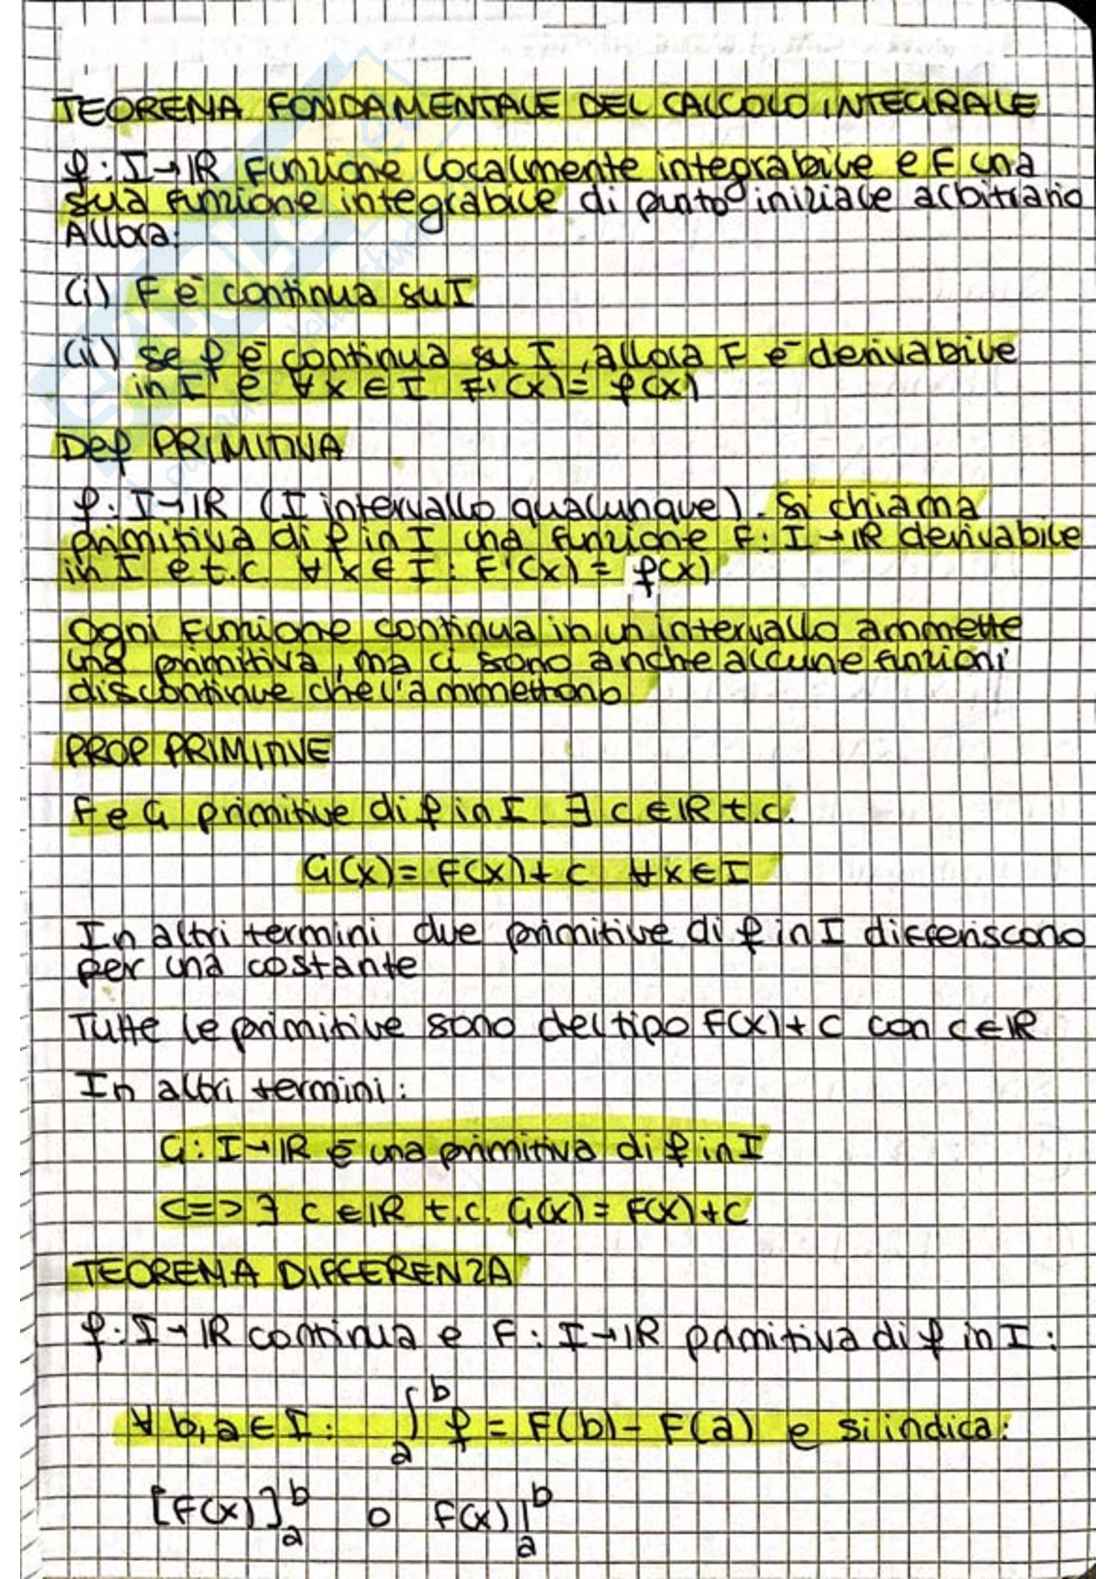 TEOREMA FONDAMENTALE DEL CALCOLO INTEGRALE
f: I→ℝ Funzione localmente integrabile e F una
sua funzione integrabile di punto iniziale arbitrario
Allora:
(i) F è continua su I
(ii) se f è continua su I, allora F è derivabile
in I e ∀x ∈ I F'(x) = f(x)
Def PRIMITIVA
f: I→ℝ (I intervallo qualunque). Si chiama
primitiva di f in I una funzione F: I→ℝ derivabile
in I e t.c. ∀ x ∈ I: F'(x) = f(x)
Ogni funzione continua in un intervallo ammette
una primitiva, ma ci sono anche alcune funzioni
discontinue che l'ammettono
PROP PRIMITIVE
F e G primitive di f in I. ∃ c ∈ ℝ t.c.
G(x) = F(x) + c ∀x ∈ I
In altri termini due primitive di f in I differiscono
per una costante
Tutte le primitive sono del tipo F(x) + c con c ∈ ℝ
In altri termini:
G: I→ℝ è una primitiva di f in I
<=> ∃ c ∈ ℝ t.c. G(x) = F(x) + c
TEOREMA DIFFERENZA
f: I→ℝ continua e F: I→ℝ primitiva di f in I:
∀ b, a ∈ I: ∫ₐᵇ f = F(b) - F(a) e si indica:
[F(x)]ₐᵇ o F(x)|ₐᵇ